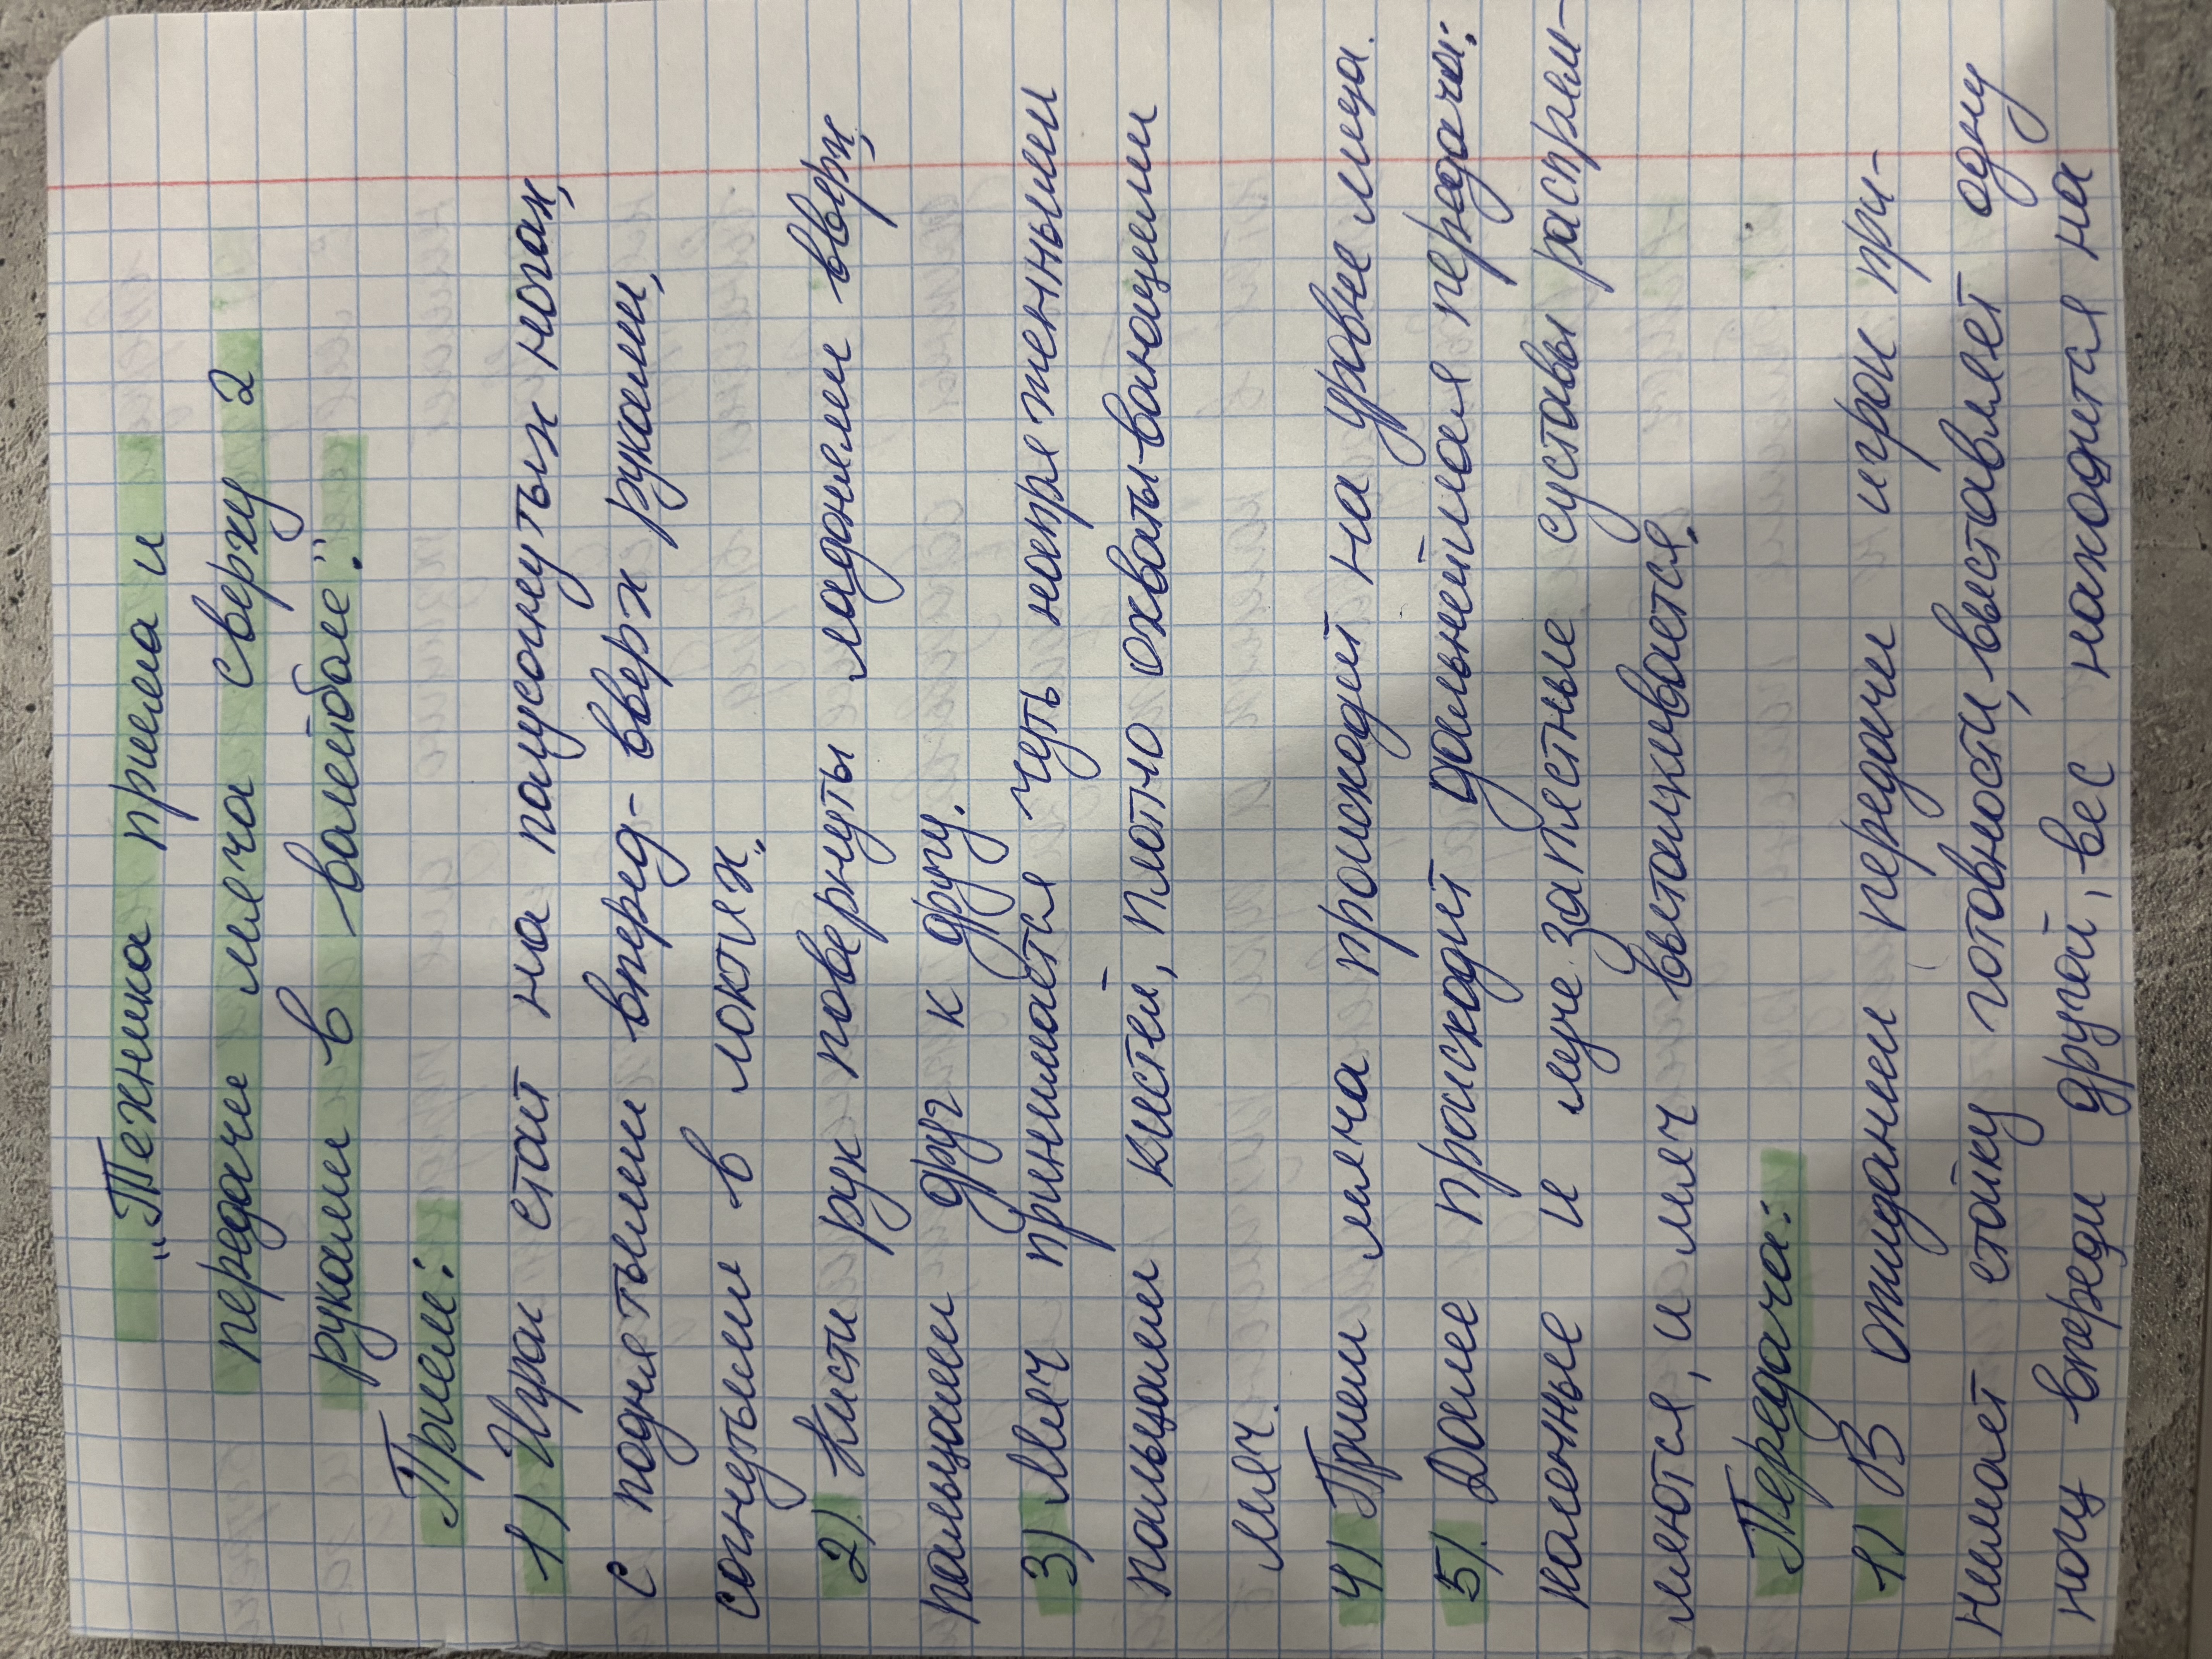 „Техника приема и
передачи мяча сверху 2
руками в волейболе".
Прием:
1) Игрок стоит на полусогнутых ногах,
с поднятыми вперед-вверх руками,
согнутыми в локтях.
2) Кисти рук повернуты ладонями вверх,
пальцами друг к другу.
3) Мяч принимается чуть напряженными
пальцами кистей, плотно охваты-вающими
мяч.
4) Прием мяча происходит на уровне лица.
5) Далее происходит дальнейшая передача:
коленные и луче.запястные суставы распрям-
ляются, и мяч выталкивается.
Передача:
1) В ожидании передачи игрок при-
нимает стойку готовности, выставляет одну
ногу впереди другой, вес находится на